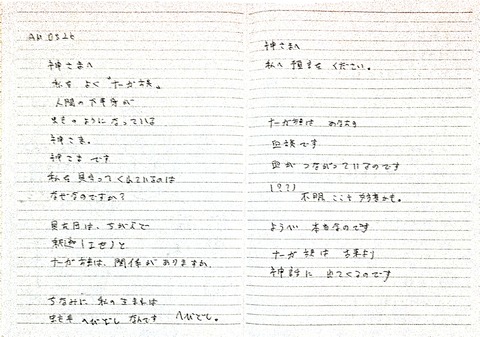 AM 0326
神さまへ
私を よく 「ナーガ族」
人間の下半身が
蛇のようになっている
神さま。
神さまです
私を見守ってくれているのは
なぜなのですか?
ナーガ族は、関係がありますか
ちなみに 私の生まれは
へびどし なんです へびどし。
神さまへ
私へ 預言を ください。
ナーガ族は あなたの
血族です
血が つながっているのです
(??)
不明 ここ
本当なのです
ナーガ族は 古来より
神話に 出てくるのです